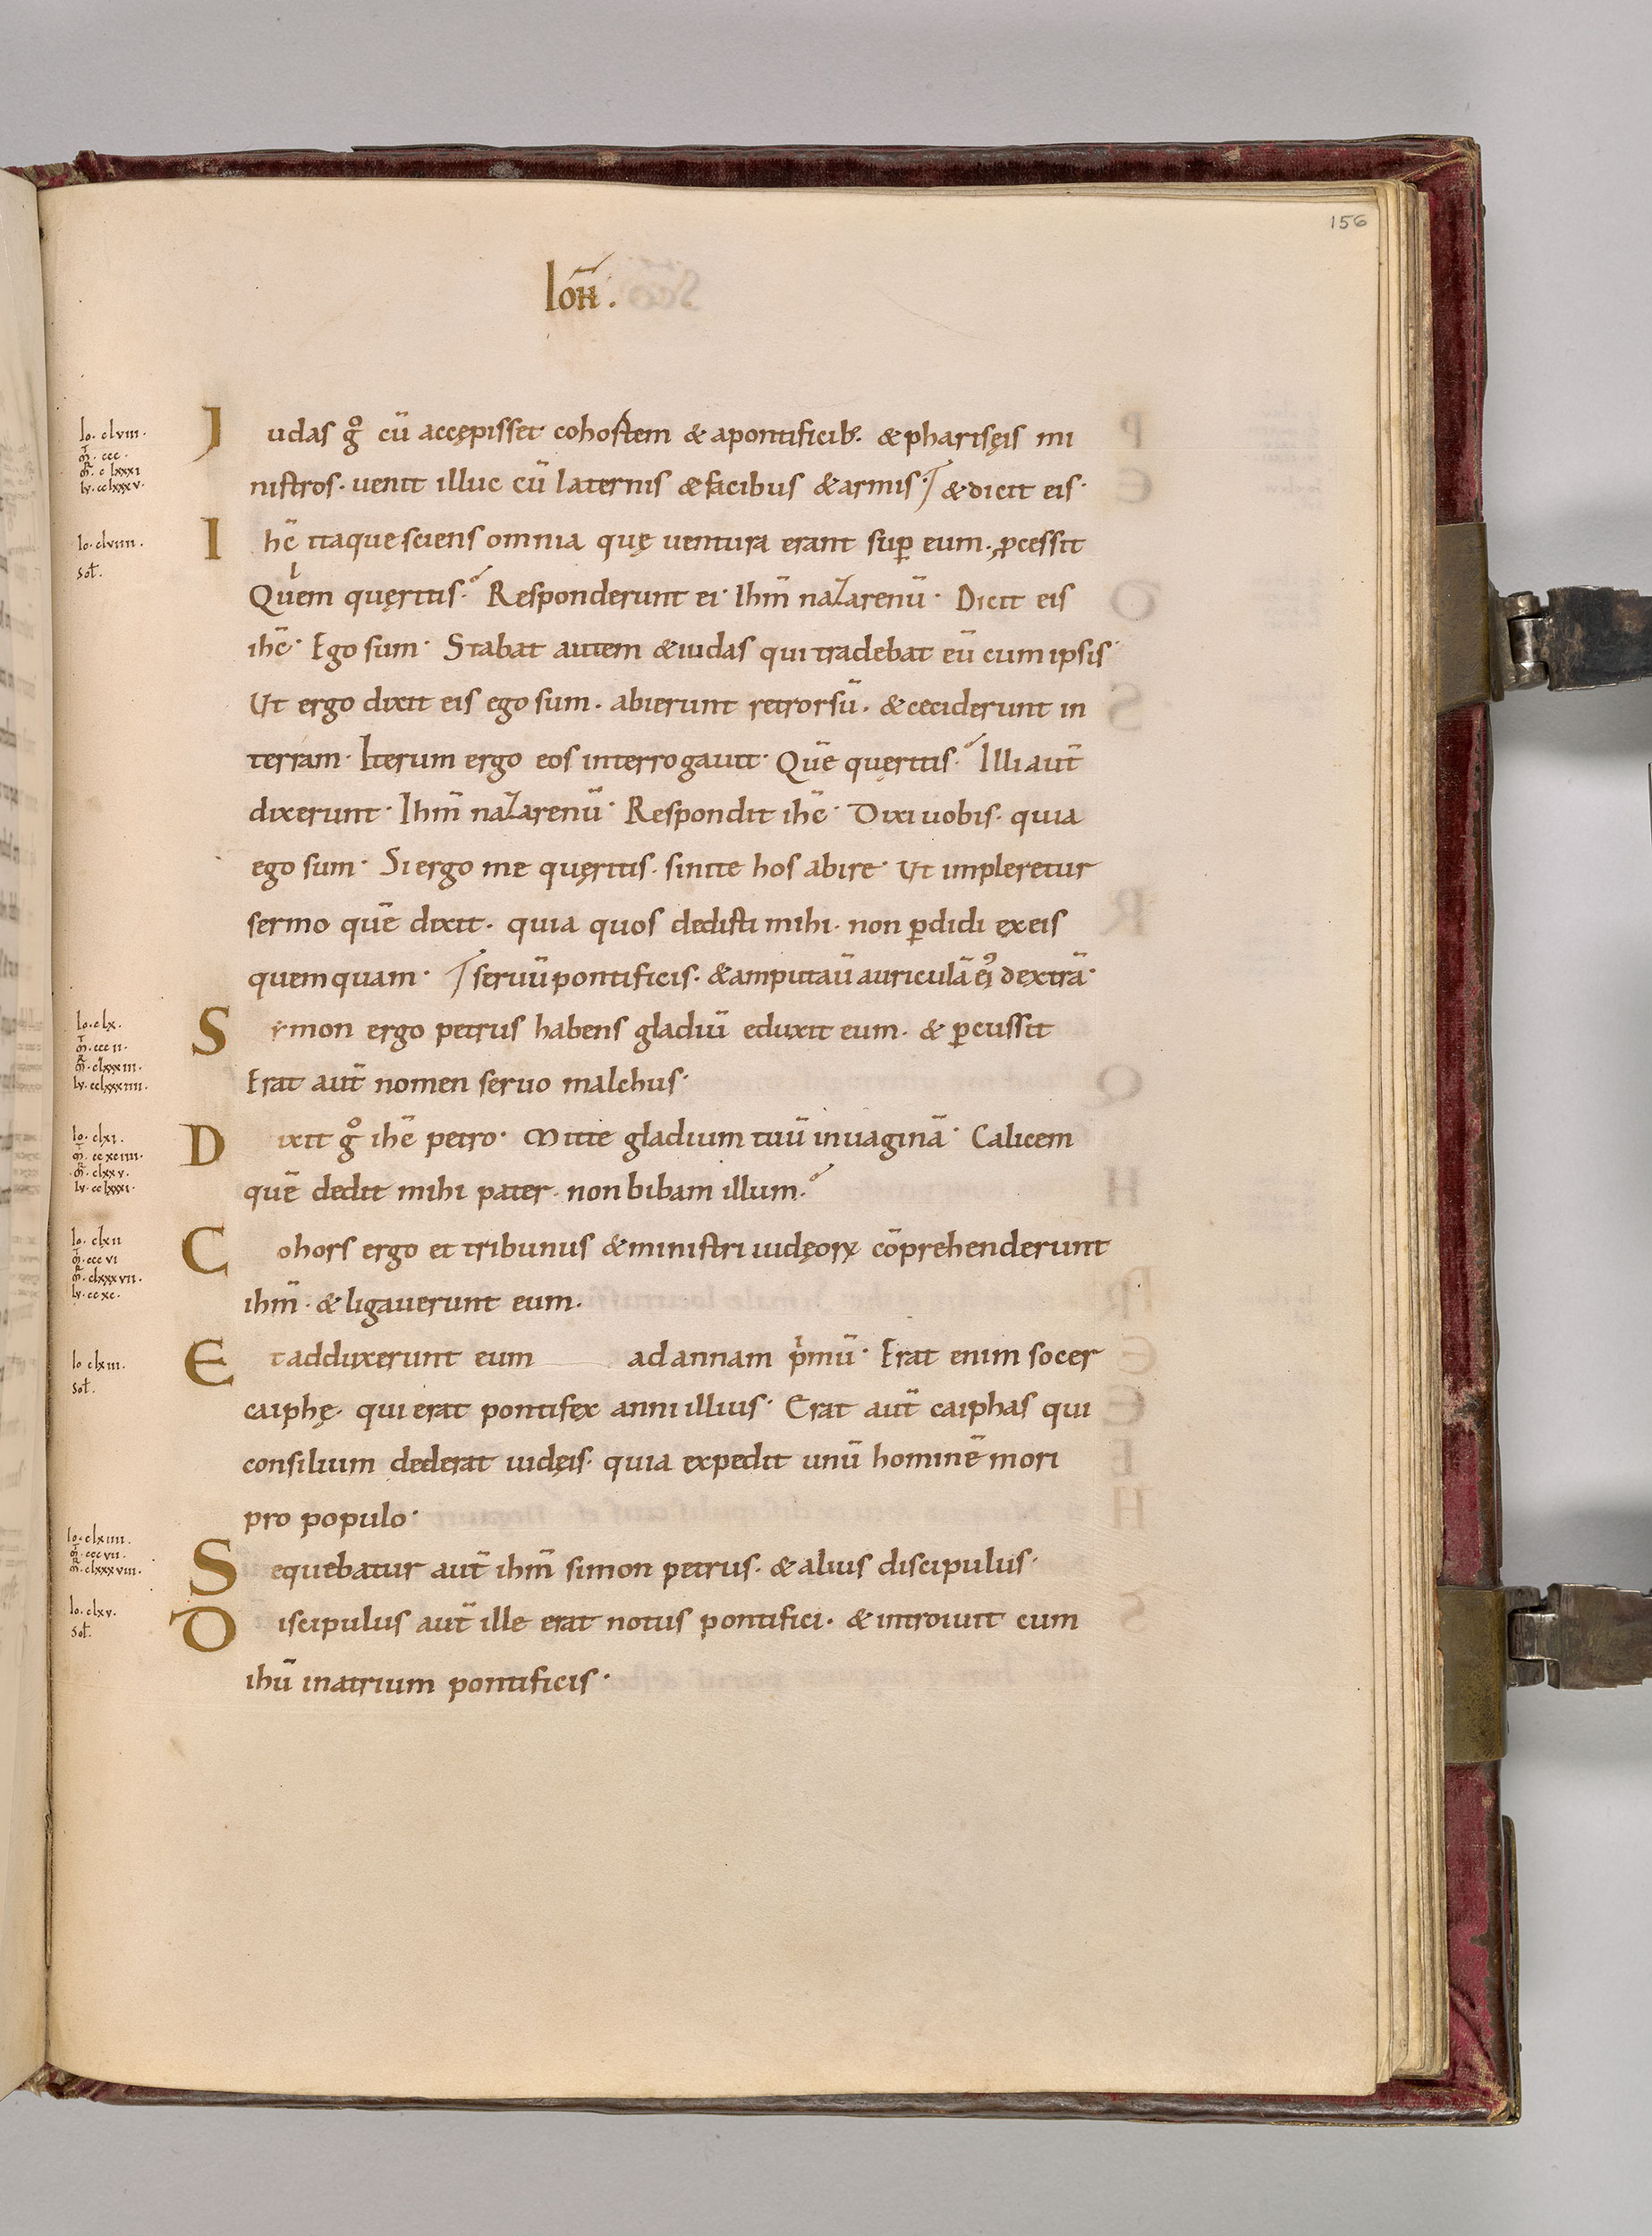 156
Ioh̄.
Io. clviii.
M̄. ccc.
M̄. clxxxi
Lv. cclxxxv.
Judas g̊ cū accępisset cohostem & apontificib; & pharisęis mi
nistros · uenit illuc cū laternis & facibus & armis · / & dicit eis ·
Io. clviiii.
Sol̄.
Ihc̄ itaque sciens omnia quę uentura erant sup̄ eum · ꝓcessit
Quem quęritis · Responderunt ei · Ihm̄ nazarenū · Dicit eis
ihc̄ · Ego sum · Stabat autem & iudas qui tradebat eū cum ipsis ·
Ut ergo dixit eis ego sum · abierunt retrorsū · & ceciderunt in
terram · Iterum ergo eos interrogauit · Quē quęritis · Illi aut̄
dixerunt · Ihm̄ nazarenū · Respondit ihc̄ · Dixi uobis · quia
ego sum · Si ergo me quęritis · sinite hos abire · Ut impleretur
sermo quē dixit · quia quos dedisti mihi · non ꝑdidi ex eis
quemquam · / seruū pontificis · & amputaū auriculā ei᾽ dextrā ·
Io. clx.
M̄. cccii.
M̄. clxxxiii.
Lv. cclxxxiiii.
Simon ergo petrus habens gladiū eduxit eum · & ꝑcussit
Erat aut̄ nomen seruo malchus ·
Io. clxi.
M̄. ccxciiii.
M̄. clxxv.
Lv. cclxxxi.
Dixit g̊ ihc̄ petro · Mitte gladium tuū in uaginā · Calicem
quē dedit mihi pater · non bibam illum ·
Io. clxii
M̄. cccvi
M̄. clxxxvii.
Lv. ccxc.
Cohors ergo et tribunus & ministri iudęoꝝ cōprehenderunt
ihm̄ · & ligauerunt eum ·
Io clxiii.
Sol̄.
Et adduxerunt eum ad annam p̍mū · Erat enim socer
caiphę · qui erat pontifex anni illius · Erat aut̄ caiphas qui
consilium dederat iudęis · quia expedit unū hominē mori
pro populo ·
Io. clxiiii.
M̄. cccvii.
M̄. clxxxviii.
Sequebatur aut̄ ihm̄ simon petrus · & alius discipulus ·
Io. clxv.
Sol̄.
Discipulus aut̄ ille erat notus pontifici · & introiuit cum
ihū in atrium pontificis ·